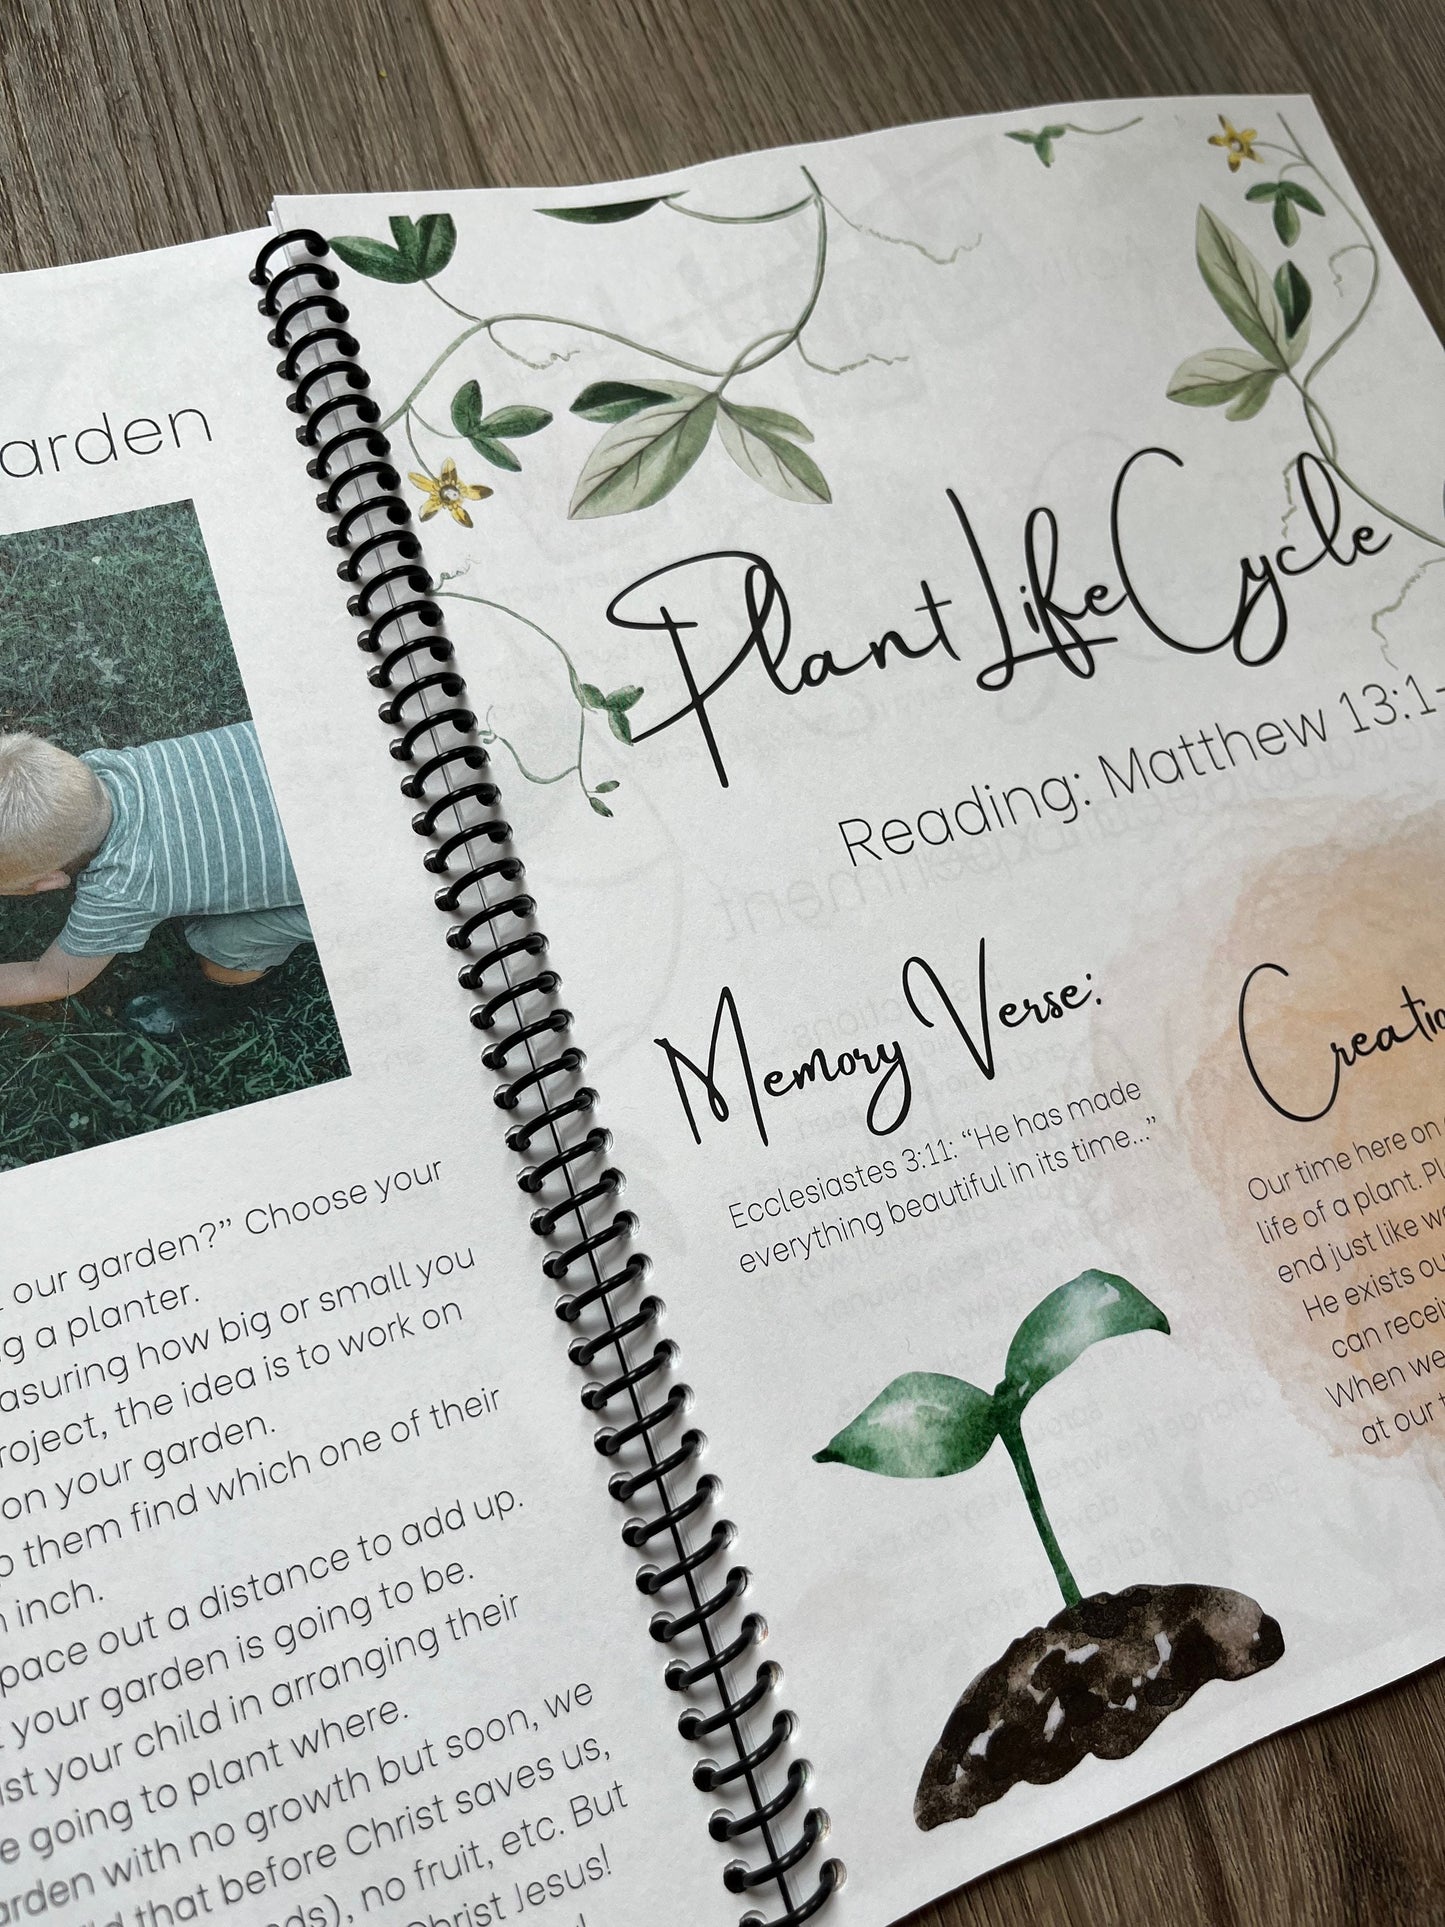 arden
our garden?” Choose your
g a planter.
asuring how big or small you
roject, the idea is to work on
on your garden.
them find which one of their
inch.
pace out a distance to add up.
your garden is going to be.
ist your child in arranging their
e going to plant where.
arden with no growth but soon, we
that before Christ saves us,
ds), no fruit, etc. But
Christ Jesus!
Plant Life Cycle
Reading: Matthew 13:1-
Memory Verse:
Ecclesiastes 3:11: “He has made
everything beautiful in its time...”
Creatio
Our time here on
life of a plant. Pl
end just like we
He exists ou
can recei
When we
at our t